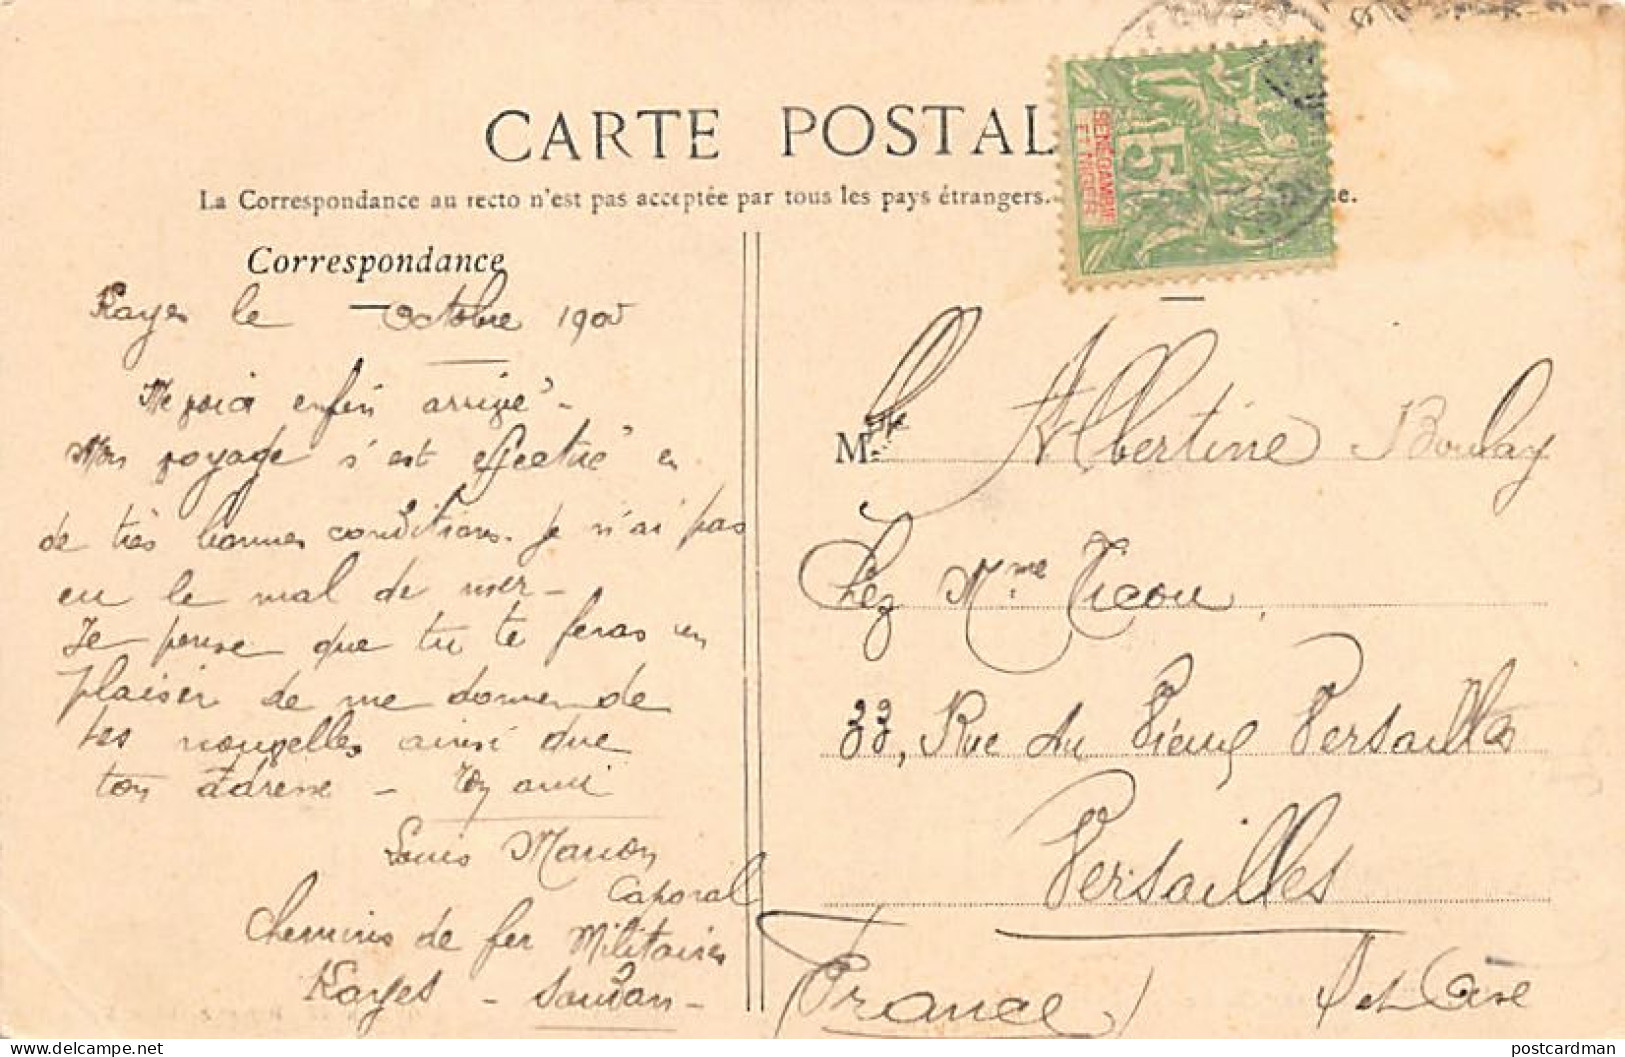 CARTE POSTAL
La Correspondance au recto n'est pas acceptée par tous les pays étrangers.
SÉNÉGAMBIE
ET NIGER
5
Correspondance
Kayes le Octobre 190
Me voici enfin arrivé -
Mon voyage s'est effectué en
de très bonnes conditions. Je n'ai pas
eu le mal de mer -
Je pense que tu te feras un
plaisir de me donner de
tes nouvelles ainsi que
ton adresse - Ton ami
Louis Marion
Caporal
Chemins de fer Militaires
Kayes - Soudan -
Mlle Albertine Boulay
Chez Mme Ticou
33, Rue du Vieux Versailles
Versailles
France
S et Oise
postcardman